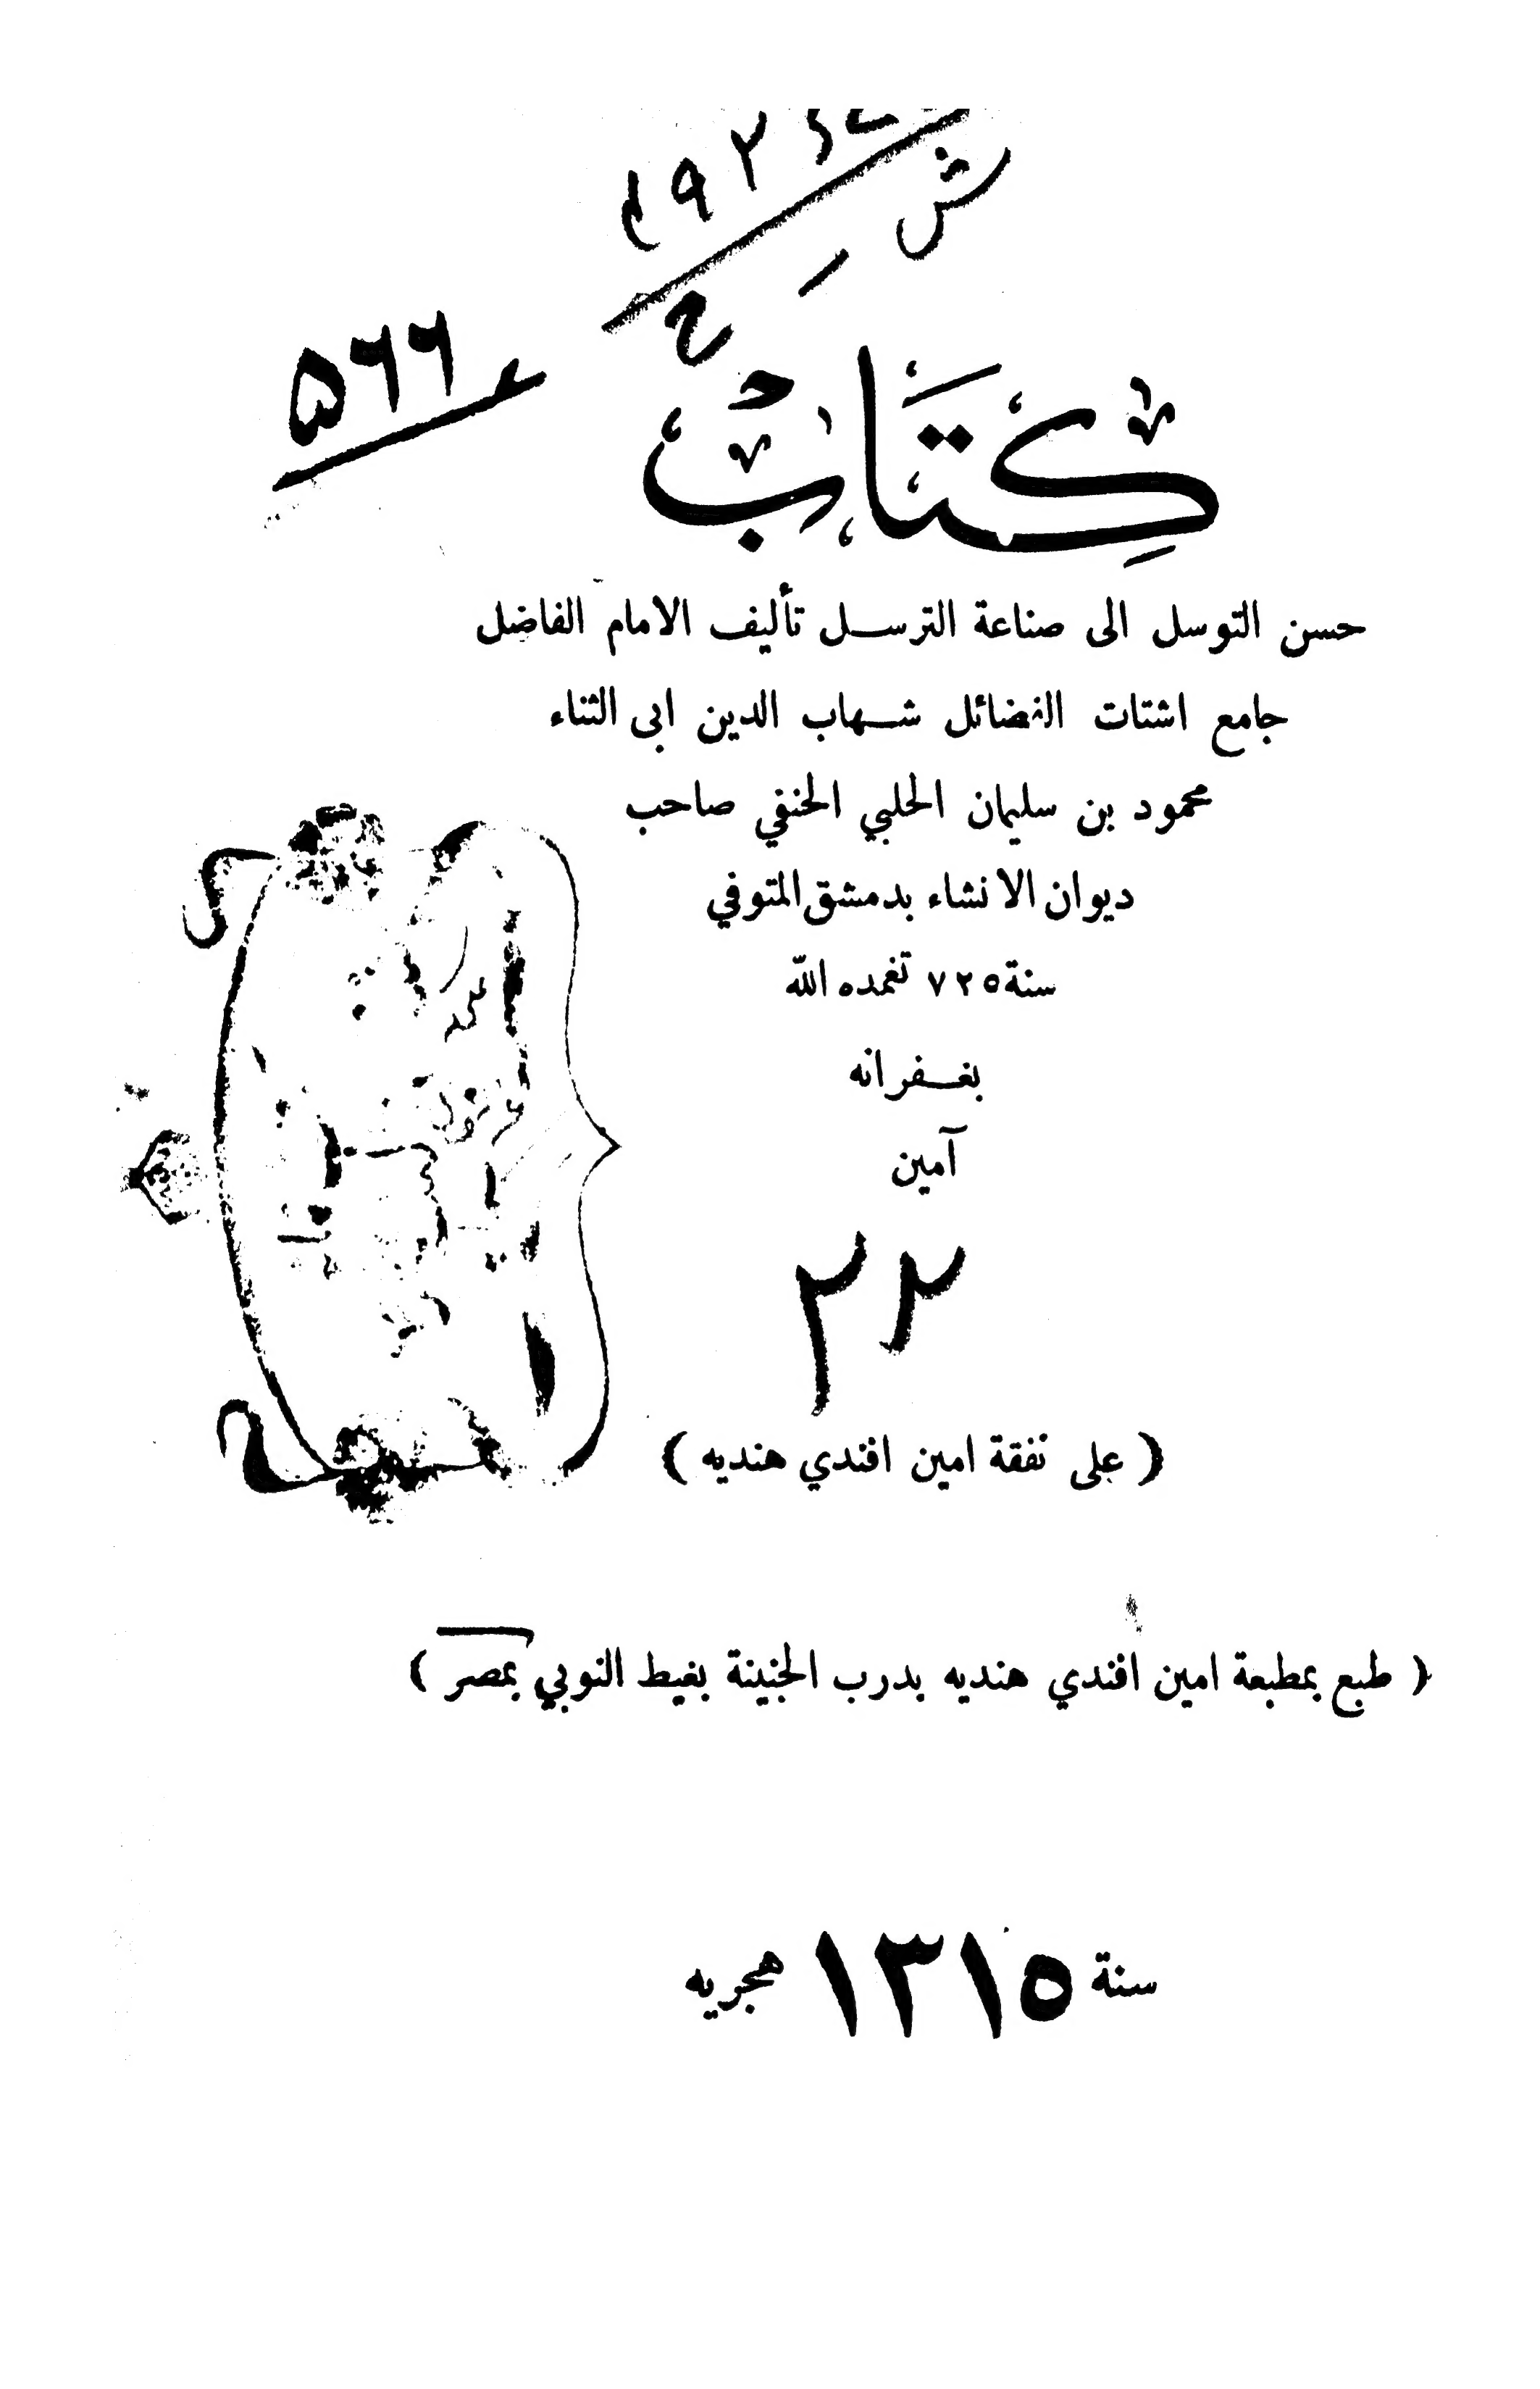 ٥٦٦
كتاب
حسن التوسل الى صناعة الترسل تأليف الامام الفاضل
جامع اشتات الفضائل شهاب الدين ابى الثناء
محمود بن سليمان الحلبي الحنفي صاحب
ديوان الانشاء بدمشق المتوفي
سنة ٧٢٥ تغمده الله
بغفرانه
آمين
٢٢
( على نفقة امين افندي هنديه )
( طبع بمطبعة امين افندي هنديه بدرب الجنينة بغيط النوبي بمصر )
سنة ١٣١٥ هجريه